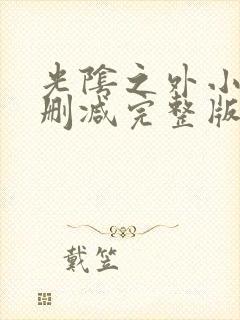 光陰之外小
刪減完整版
戴笠